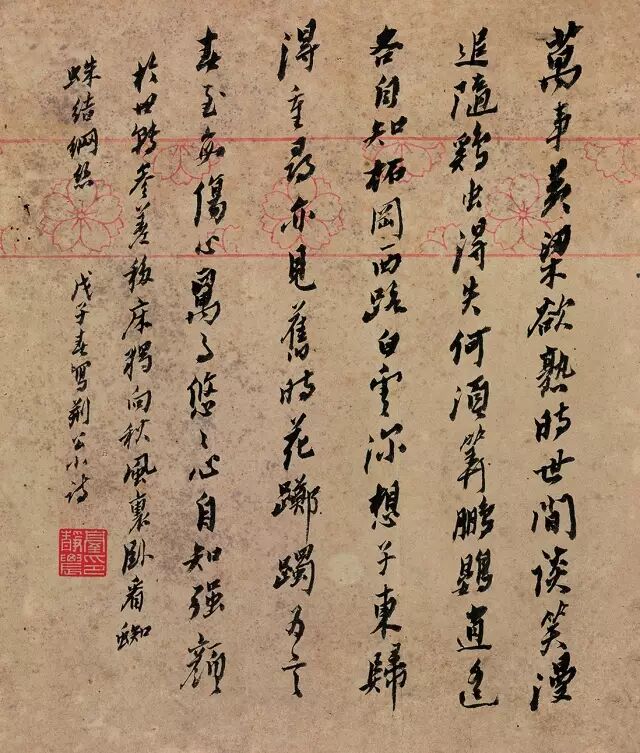 萬事黃粱欲熟時世間談笑漫
追隨鷄虫得失何須筭鵬鷃逍遙
各自知柘岡西路白雲深想子東歸
得重尋亦見舊時花躑躅為言
春至每傷心萬事悠〻心自知強顏
於世轉參差移床獨向秋風裏臥看蜘
蛛結網絲 戊子春寫荊公小詩
臺靜農印